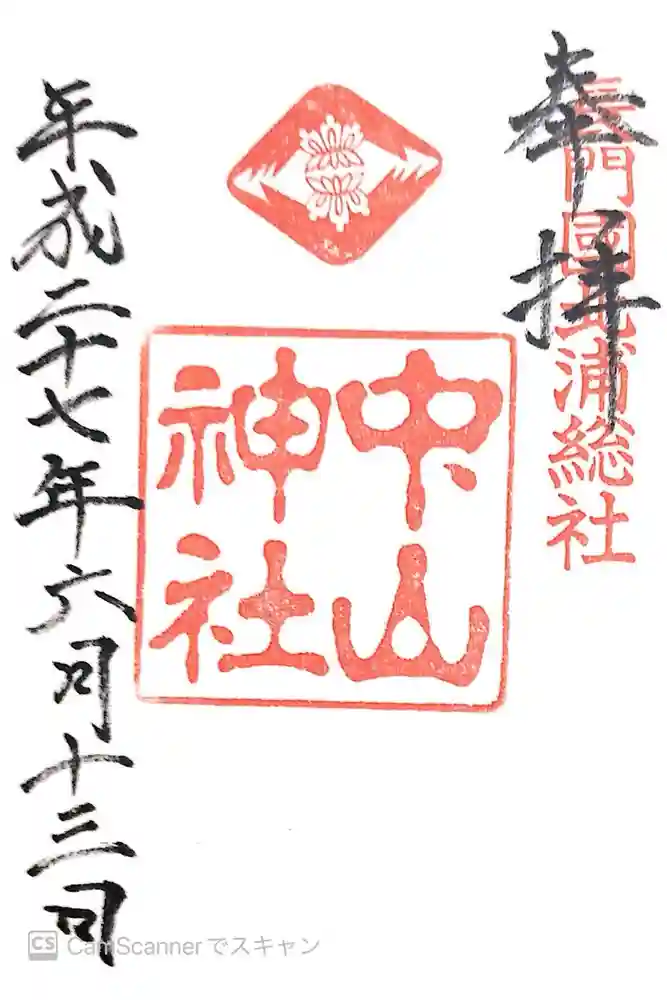 奉拝
長門國北浦総社
中山
神社
平成二十七年六月十三日
CS CamScannerでスキャン